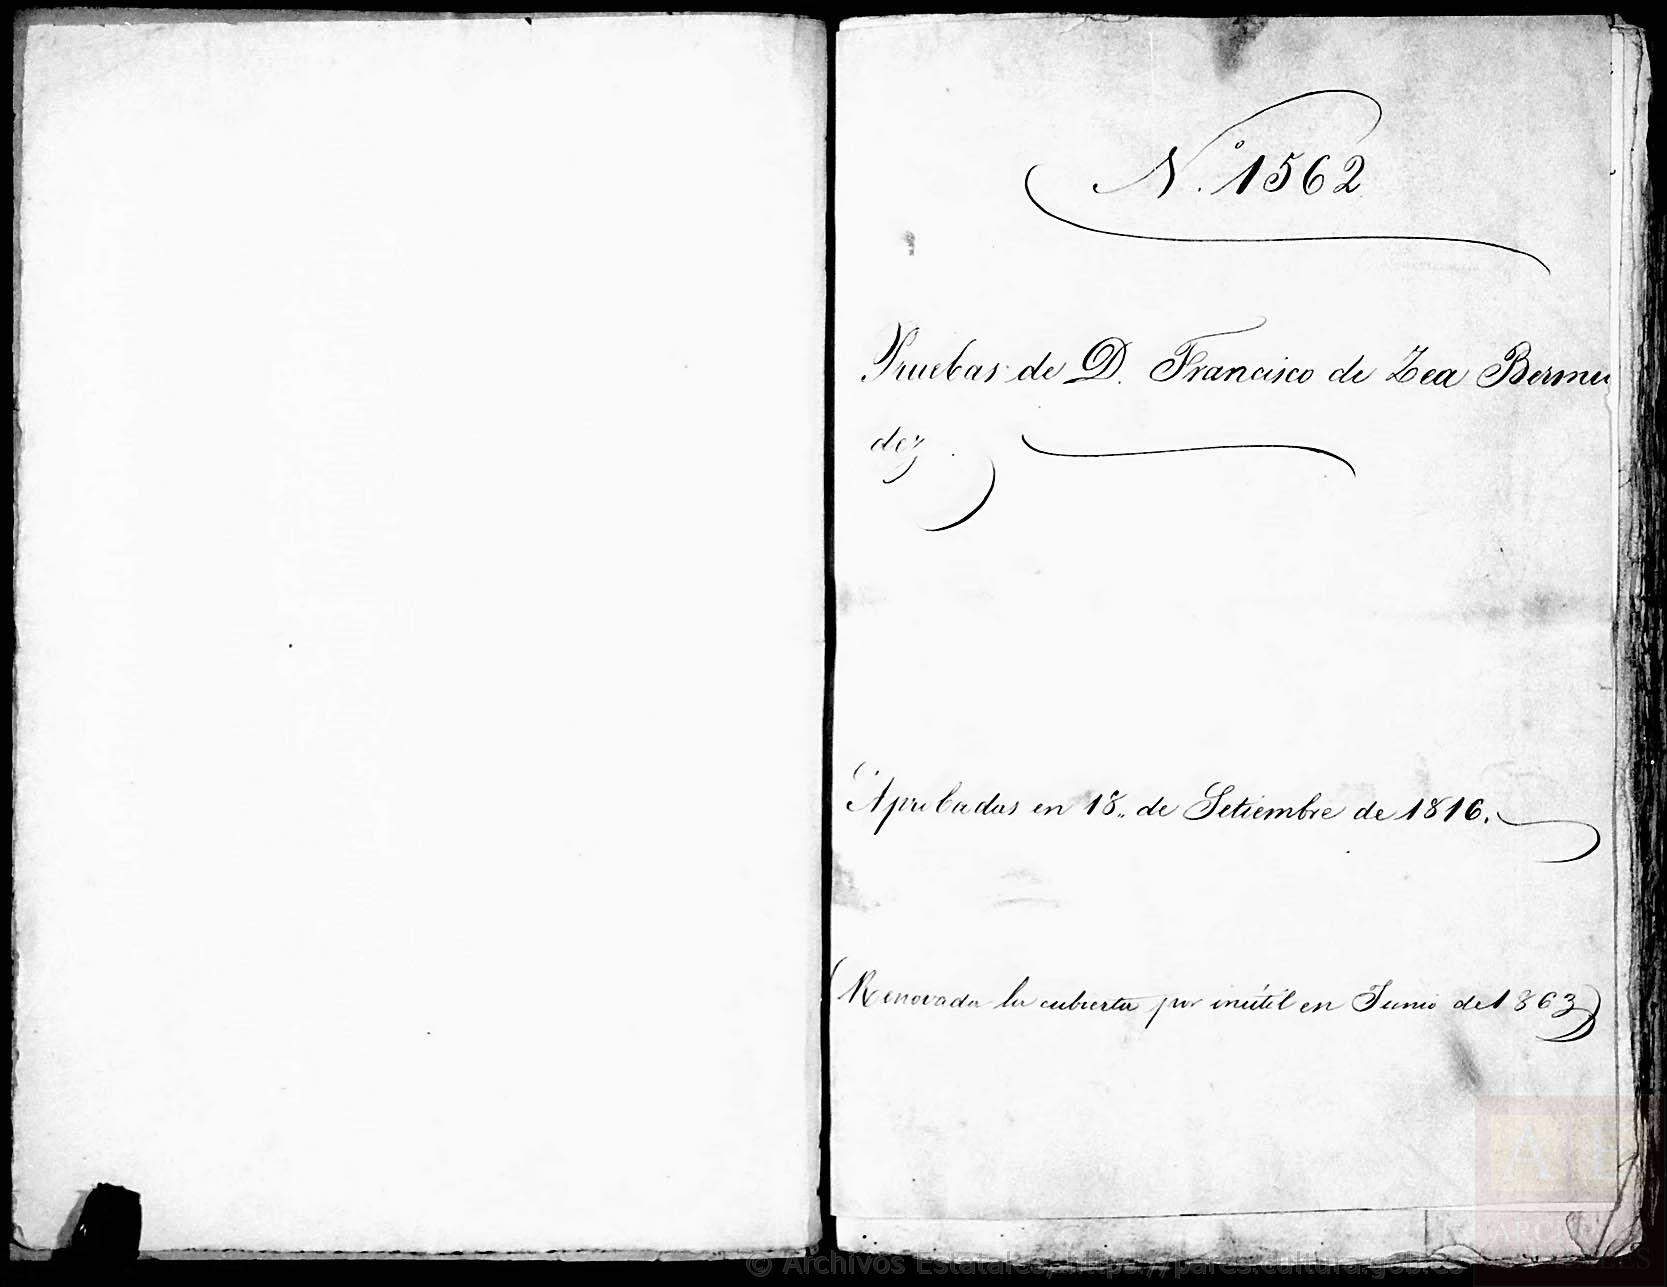 N.º 1562
Pruebas de D. Francisco de Zea Bermu
dez.
Aprobadas en 18,, de Setiembre de 1816.
Renovada la cubierta por inútil en Junio de 1863
© Archivos Estatales, https://pares.cultura.gob.es